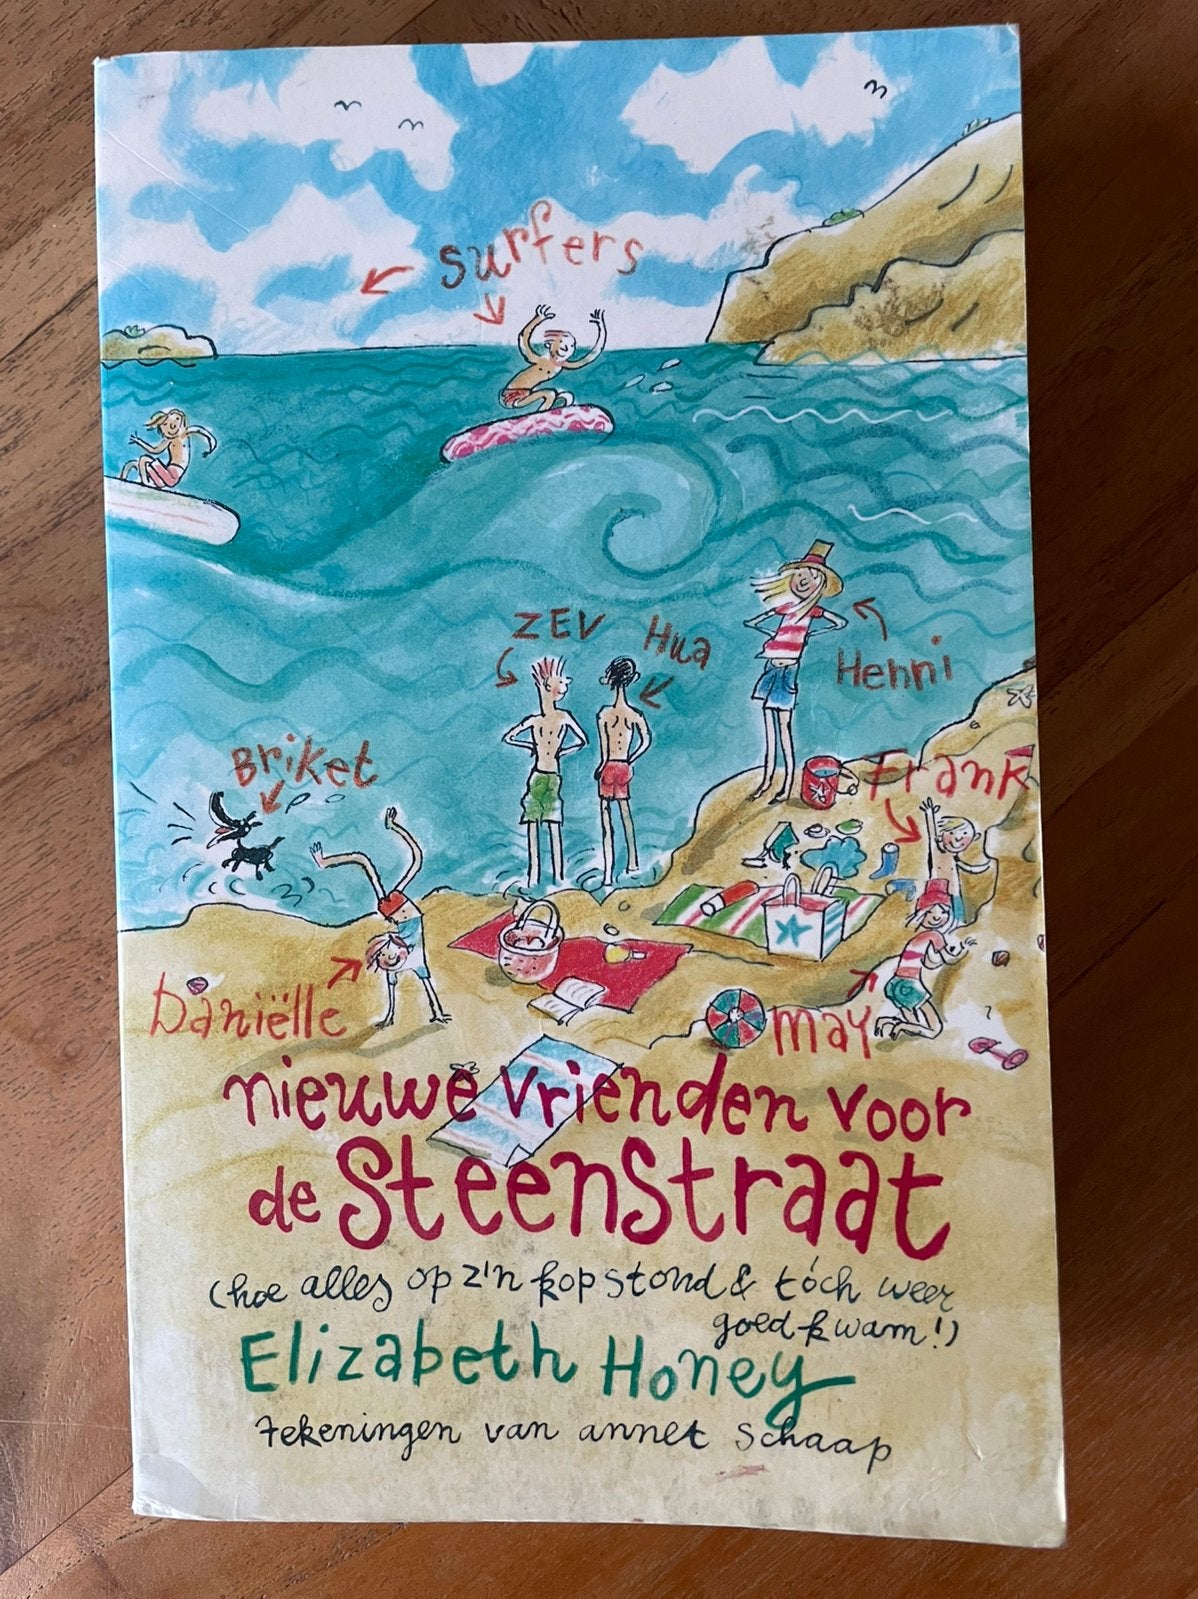 surfers
ZEV
Hua
Henni
Briket
Frank
Daniëlle
May
nieuwe vrienden voor
de Steenstraat
(hoe alles op z'n kop stond & tóch weer
goed kwam!)
Elizabeth Honey
tekeningen van annet schaap